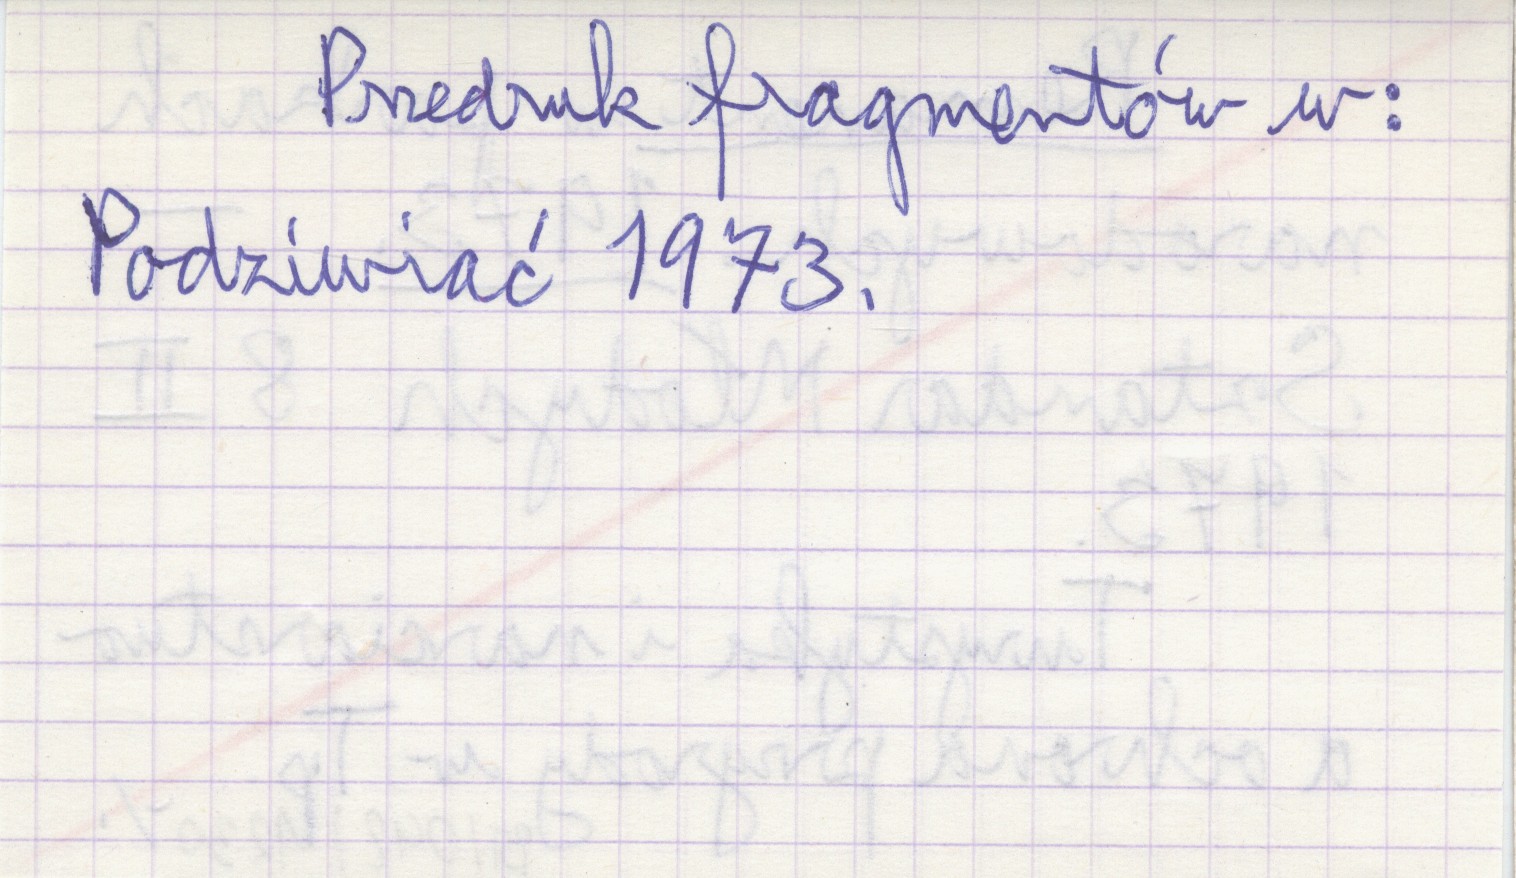 Przedruk fragmentów w:
Podziwiać 1973.